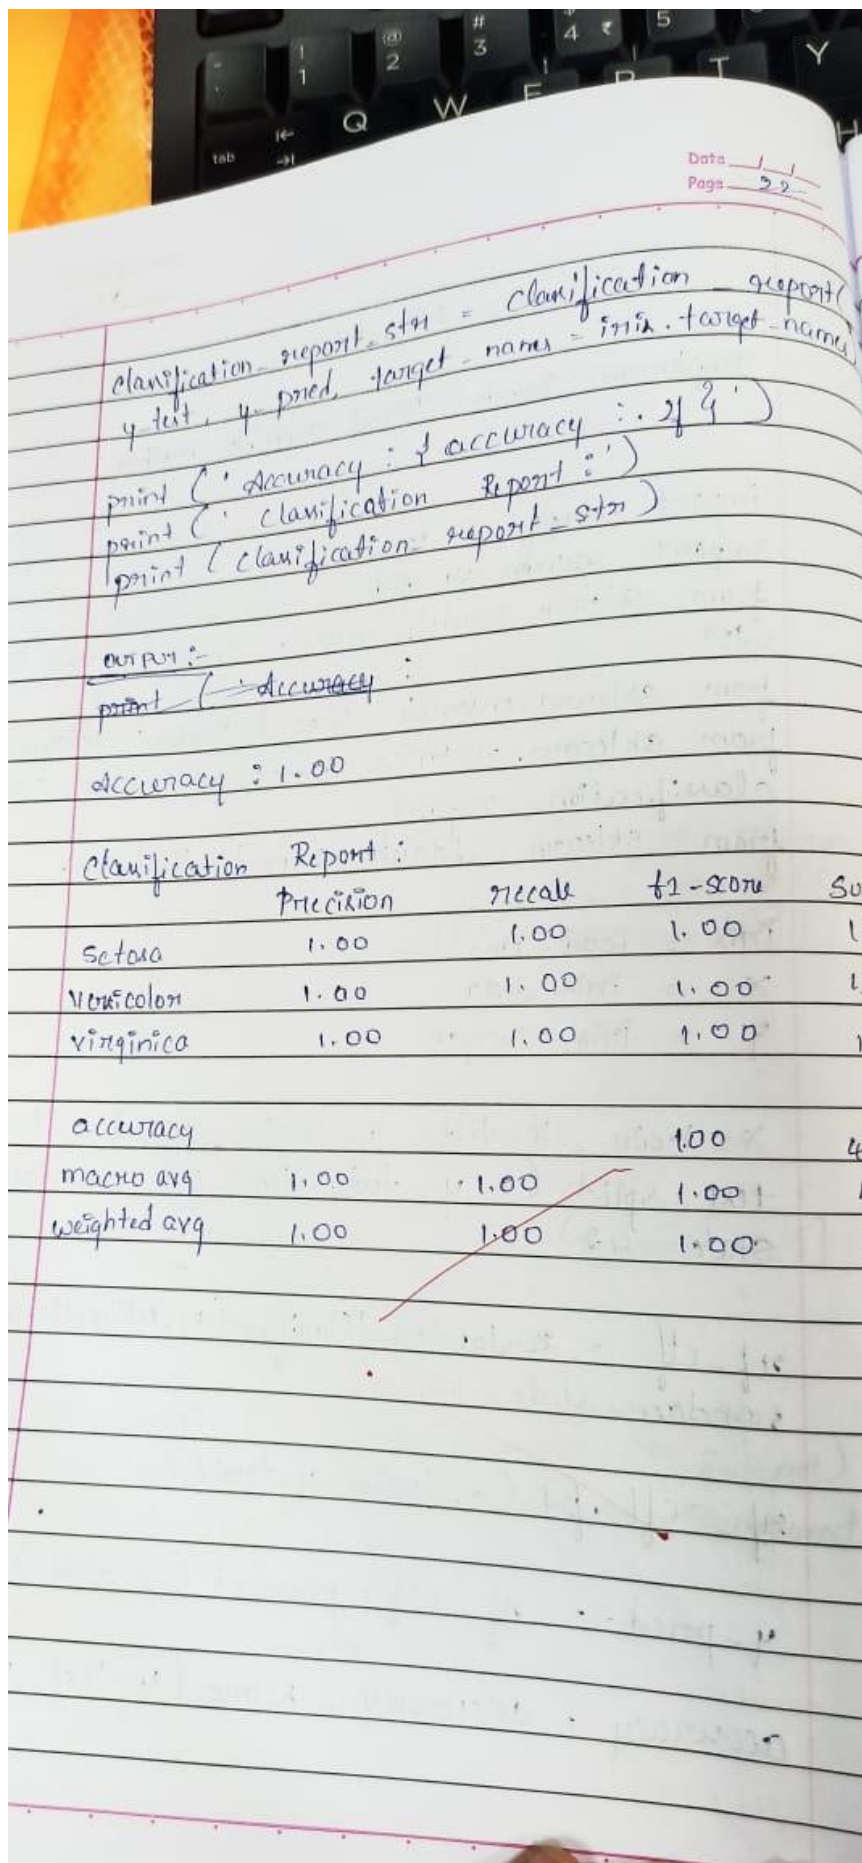 ! 1
@ 2
# 3
4 ₹
5
tab
Q W E R T Y
H
Date
Page 22
classification_report_str = classification_report(
y_test, y_pred, target_names = iris.target_names
print ('Accuracy : { accuracy : .2f }')
print ('Classification Report :')
print (classification_report_str)
OUTPUT :-
print ( Accuracy :
Accuracy : 1.00
Classification Report :
Precision recall f1-score Su
Setosa 1.00 1.00 1.00 1
versicolor 1.00 1.00 1.00 1
virginica 1.00 1.00 1.00 1
accuracy 1.00 4
macro avg 1.00 1.00 1.00
weighted avg 1.00 1.00 1.00